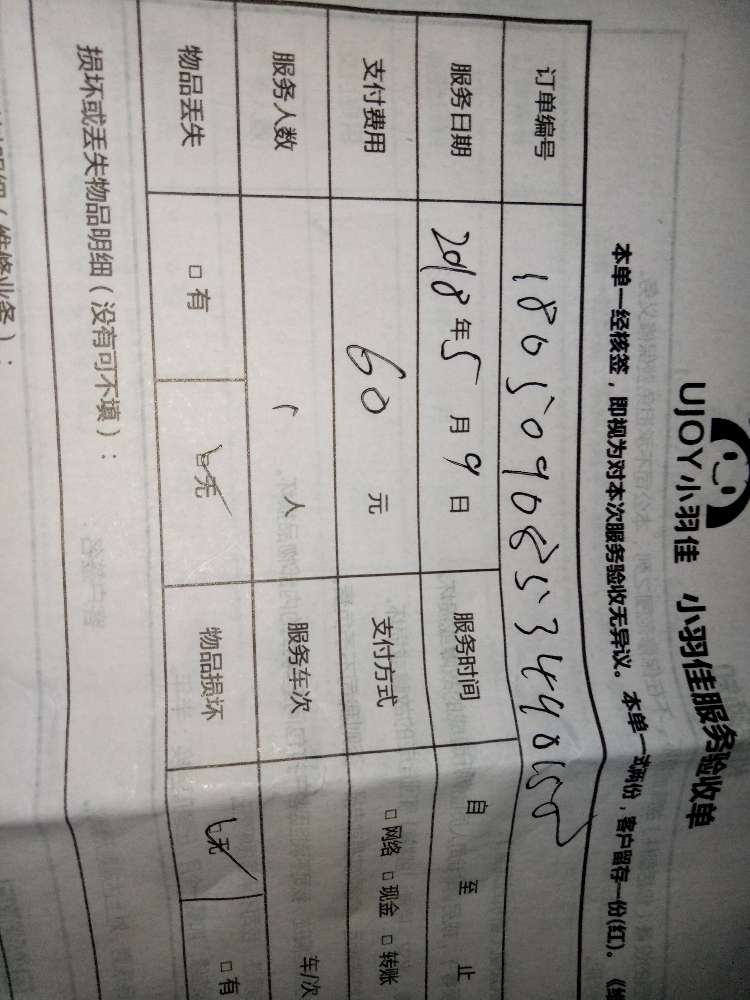 UJOY小羽佳 小羽佳服务验收单
本单一经核签，即视为对本次服务验收无异议。本单一式两份，客户留存一份(红)。
订单编号
服务日期 2018年5月9日 服务时间 自 至 止
支付费用 60 元 支付方式 □网络 □现金 □转账
服务人数 1 人 服务车次 车/次
物品丢失 □有 □无 物品损坏 □无 □有
损坏或丢失物品明细（没有可不填）：